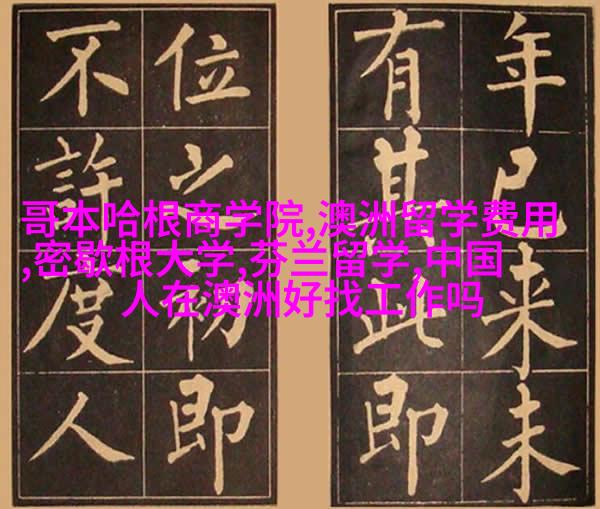 哥本哈根商学院,澳洲留学费用
,密歇根大学,芬兰留学,中国
人在澳洲好找工作吗
年已来未
有其此即
位之初即
不許度人